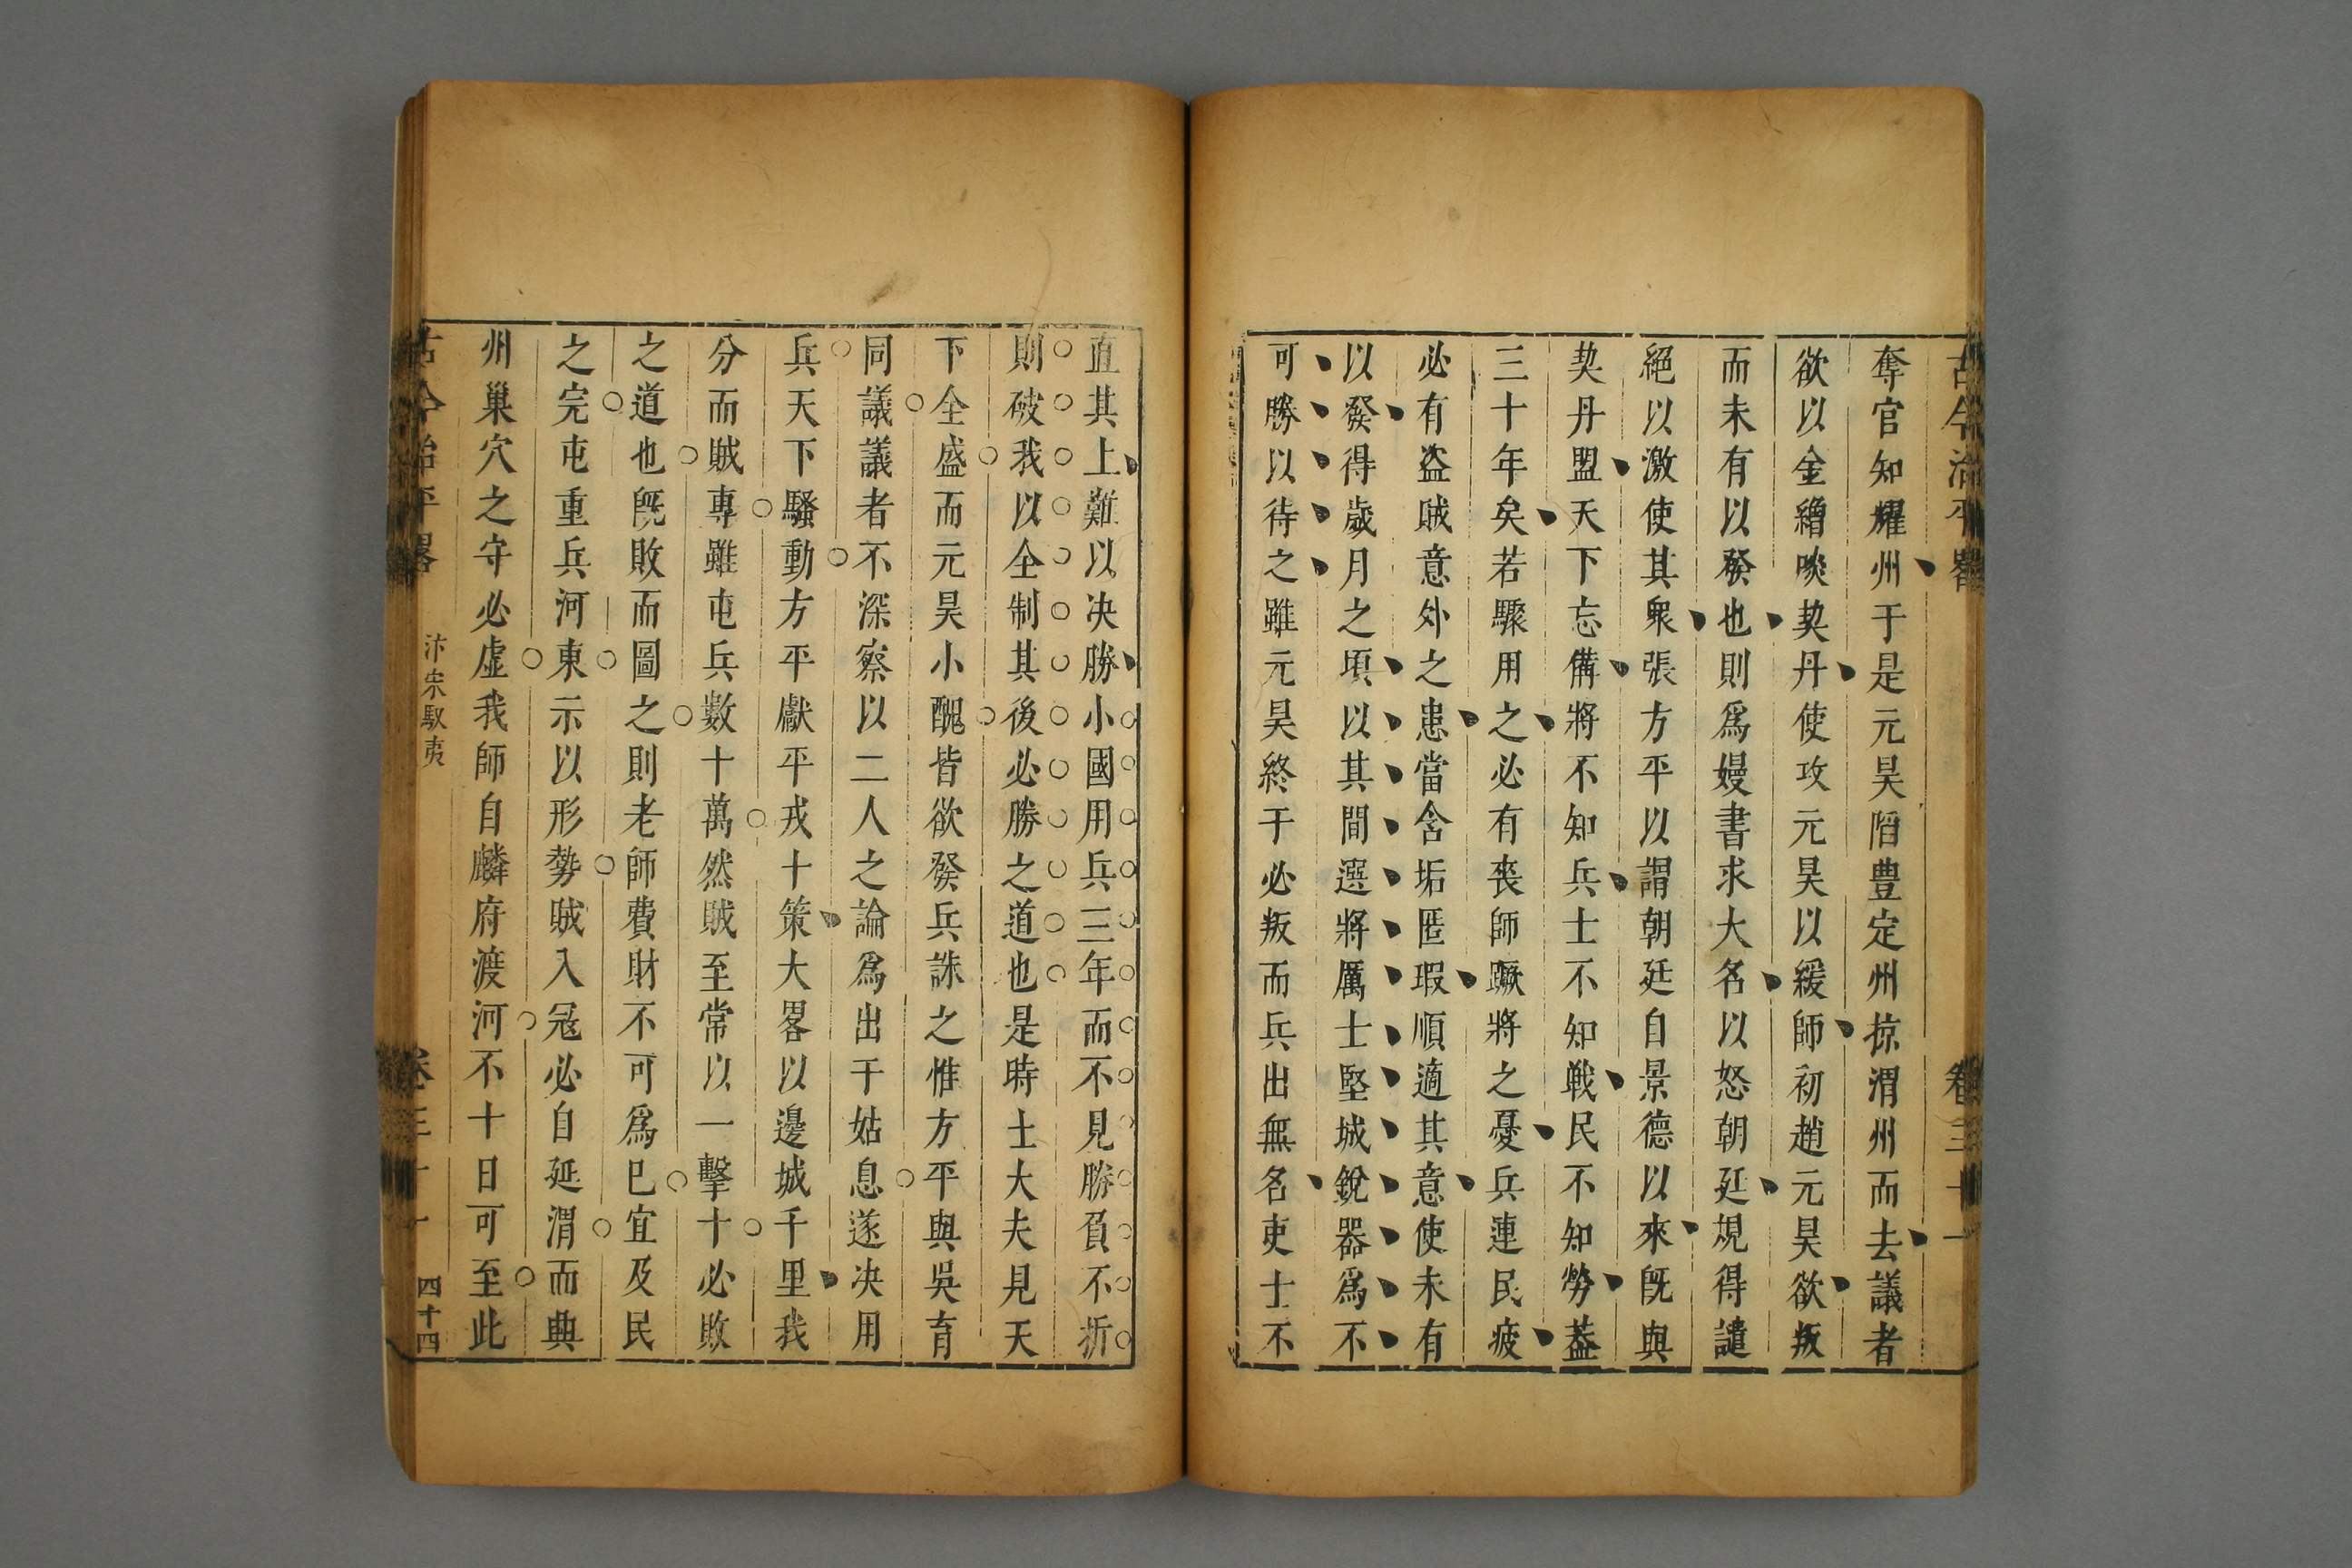 古今治平畧 卷三十一
奪官知耀州于是元昊陷豊定州掠渭州而去議者
欲以金繒啖契丹使攻元昊以緩師初趙元昊欲叛
而未有以發也則爲嫚書求大名以怒朝廷規得譴
絕以激使其衆張方平以謂朝廷自景德以來旣與
契丹盟天下忘備將不知兵士不知戰民不知勞葢
三十年矣若驟用之必有喪師蹶將之憂兵連民疲
必有盜賊意外之患當含垢匿瑕順適其意使未有
以發得歲月之頃以其間選將厲士堅城銳器爲不
可勝以待之雖元昊終于必叛而兵出無名吏士不
直其上難以決勝小國用兵三年而不見勝負不折
則破我以全制其後必勝之道也是時士大夫見天
下全盛而元昊小醜皆欲發兵誅之惟方平與吳育
同議議者不深察以二人之論爲出于姑息遂决用
兵天下騷動方平獻平戎十策大畧以邊城千里我
分而賊專雖屯兵數十萬然賊至常以一擊十必敗
之道也旣敗而圖之則老師費財不可爲巳宜及民
之完屯重兵河東示以形勢賊入寇必自延渭而興
州巢穴之守必虛我師自麟府渡河不十日可至此
古今治平畧 汴宋馭夷 卷三十一 四十四